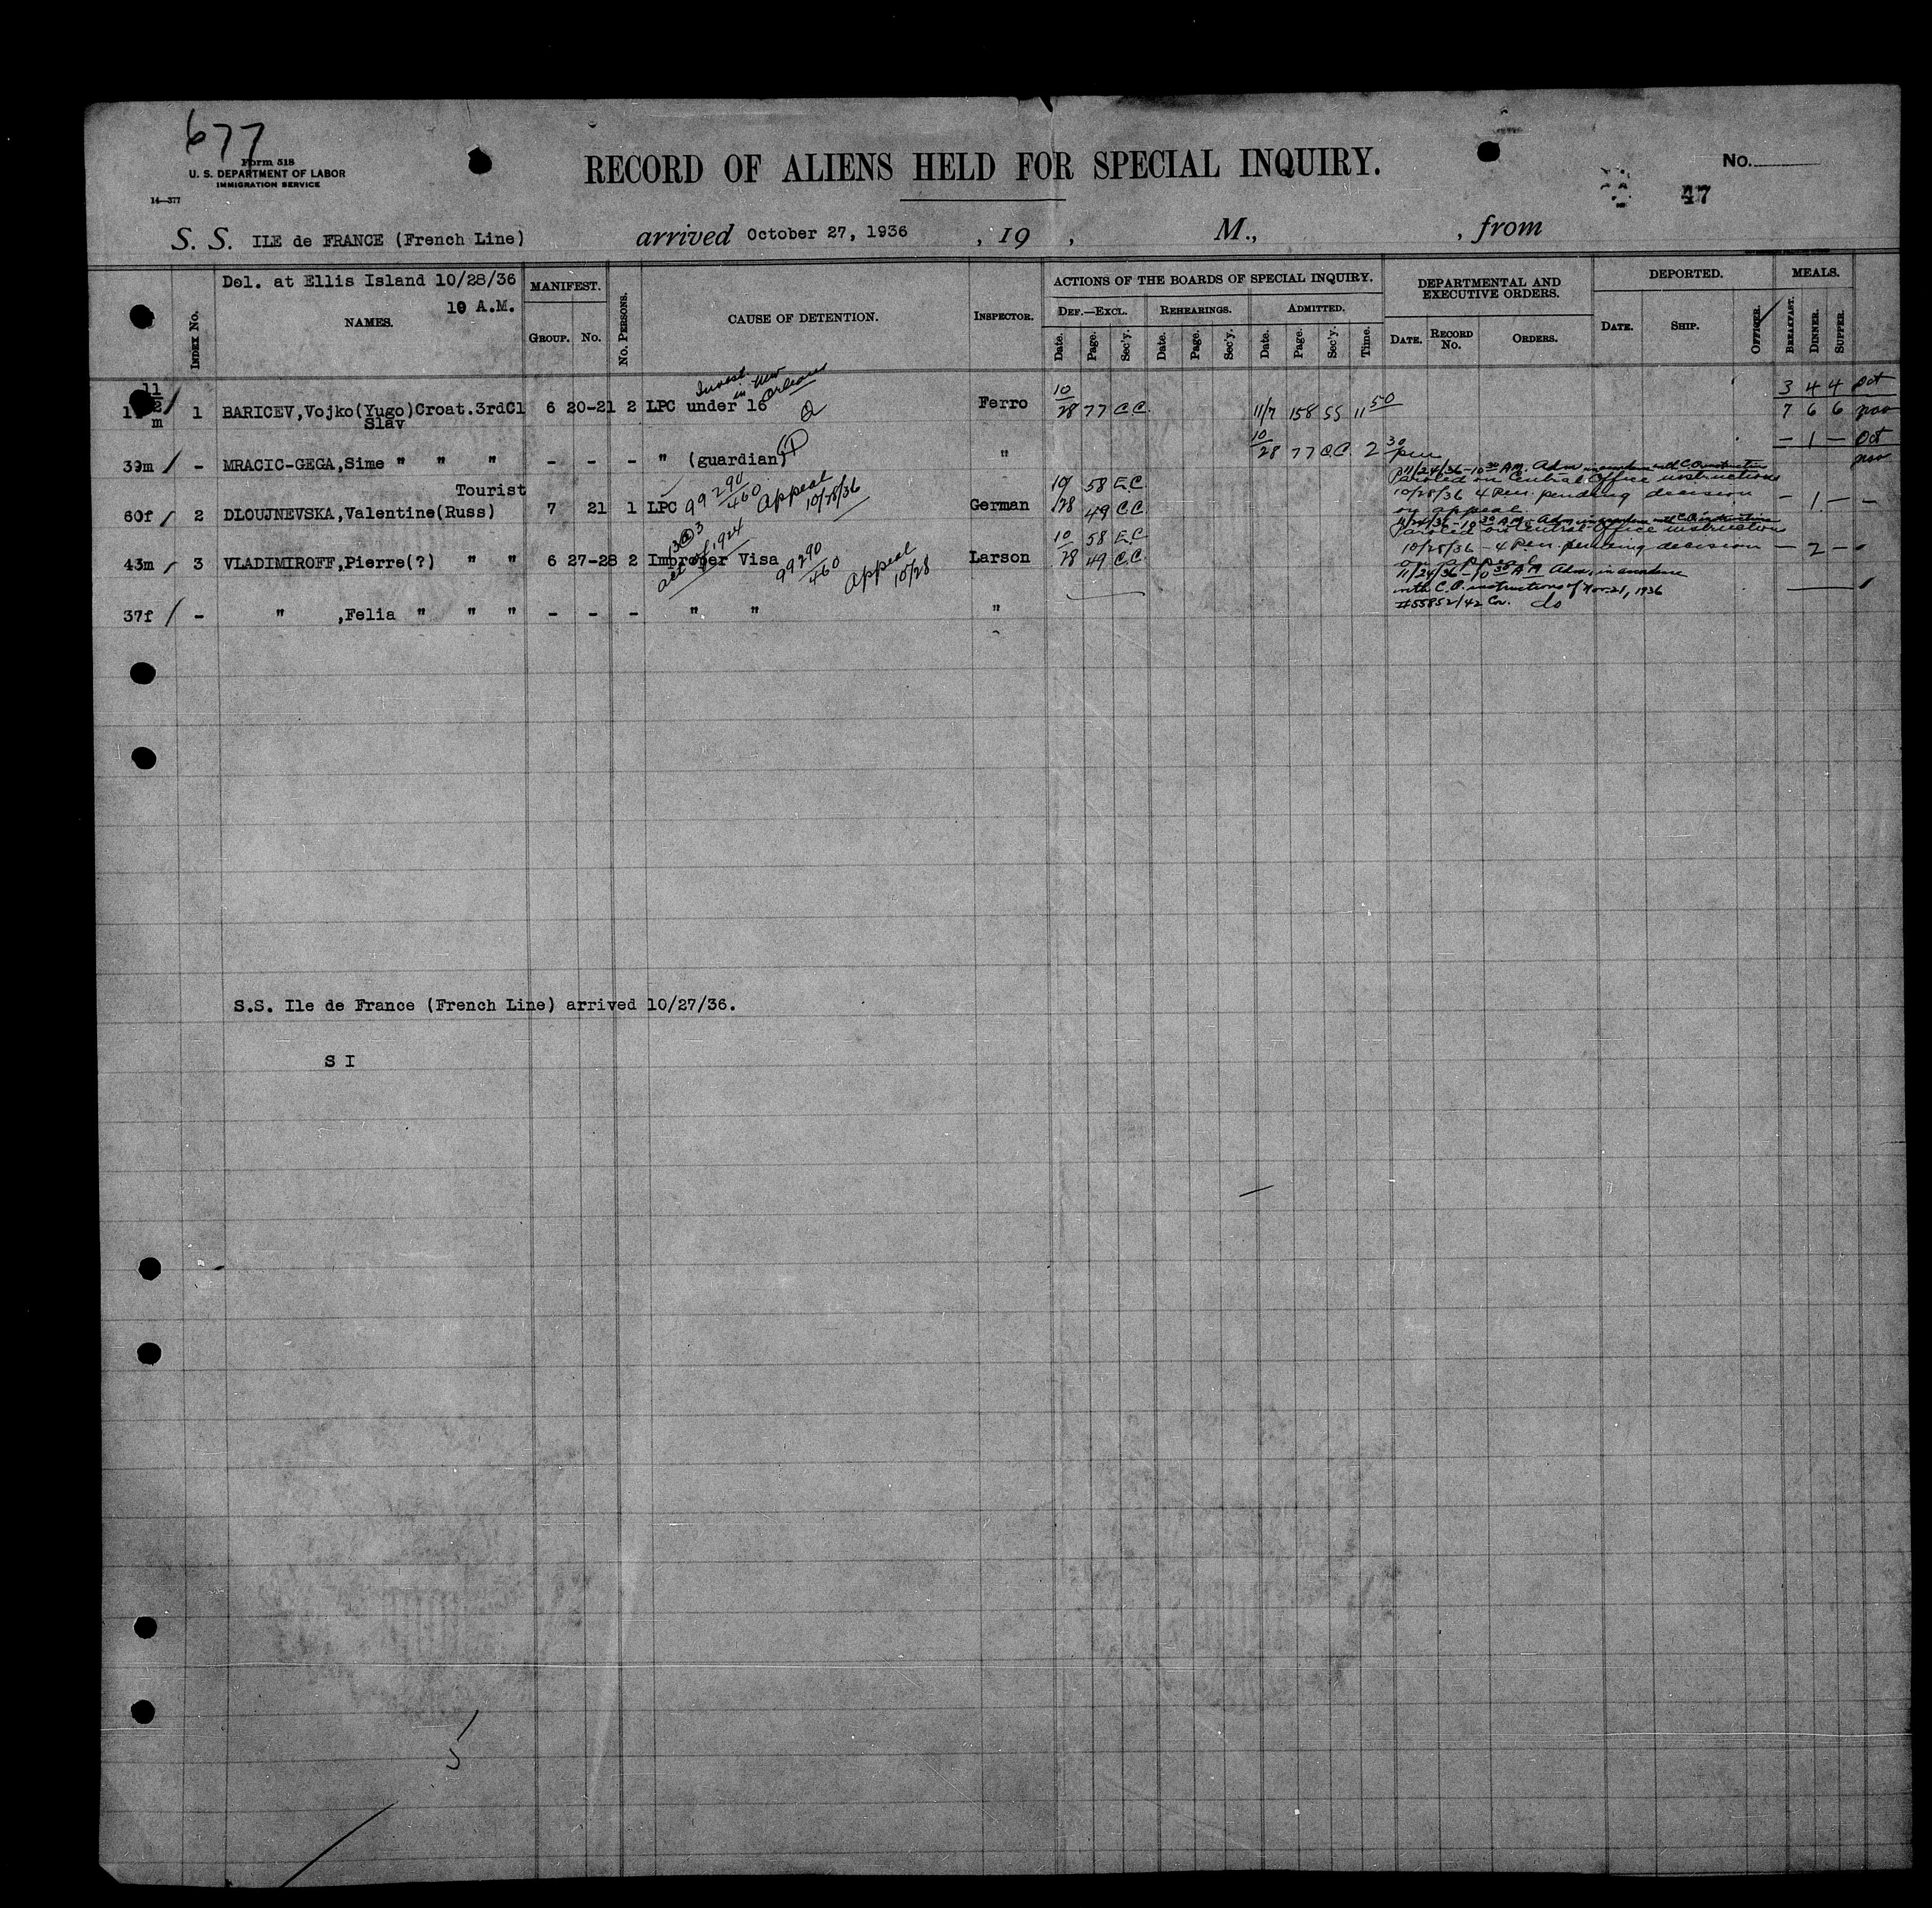 677
Form 518
U. S. DEPARTMENT OF LABOR
IMMIGRATION SERVICE
14—377
RECORD OF ALIENS HELD FOR SPECIAL INQUIRY.
No.
47
S. S. ILE de FRANCE (French Line) arrived October 27, 1936 , 19 , M., , from
Del. at Ellis Island 10/28/36
10 A.M.
INDEX No. NAMES. MANIFEST. GROUP. No. No. PERSONS. CAUSE OF DETENTION. INSPECTOR.
ACTIONS OF THE BOARDS OF SPECIAL INQUIRY.
DEF.—EXCL. REHEARINGS. ADMITTED.
Date. Page. Sec'y. Date. Page. Sec'y. Date. Page. Sec'y. Time.
DEPARTMENTAL AND EXECUTIVE ORDERS.
DATE. RECORD No. ORDERS.
DEPORTED.
DATE. SHIP. OFFICER.
MEALS.
BREAKFAST. DINNER. SUPPER.
Invest. in New Orleans
11
m 1 BARICEV,Vojko(Yugo)Croat.3rdCl 6 20-21 2 LPC under 16 Ferro 10/28 77 C.C. 11/7 158 SS 11 50 3 4 4 Oct
Slav
7 6 6 Nov
39m / - MRACIC-GEGA,Sime " " " - - - " (guardian) " 10/28 77 C.C. 2 30 pm - 1 - Oct
Nov
11/24/36-10 30 AM. Adm in accordance with C.O. instructions
Paroled on Central Office instructions
Tourist
60f / 2 DLOUJNEVSKA,Valentine(Russ) 7 21 1 LPC 99290/460 Appeal 10/28/36 German 10/28 58 E.C. 49 C.C. 10/28/36 4 P.m. pending decision on appeal. - 1 - -
11/24/36-10 30 A.M. Adm in accordance with C.O. instructions
Paroled on Central Office instructions
act of 1924
43m / 3 VLADIMIROFF,Pierre(?) " " 6 27-28 2 Improper Visa 99290/460 Appeal 10/28 Larson 10/28 58 E.C. 49 C.C. 10/28/36 - 4 P.m. pending decision on appeal - 2 -
11/24/36-10 30 A.M. Adm. in accordance
with C.O. instructions of Nov. 21, 1936
#55852/42 Cor. do
37f / - " ,Felia " " " - - - " " "
S.S. Ile de France (French Line) arrived 10/27/36.
S I
5